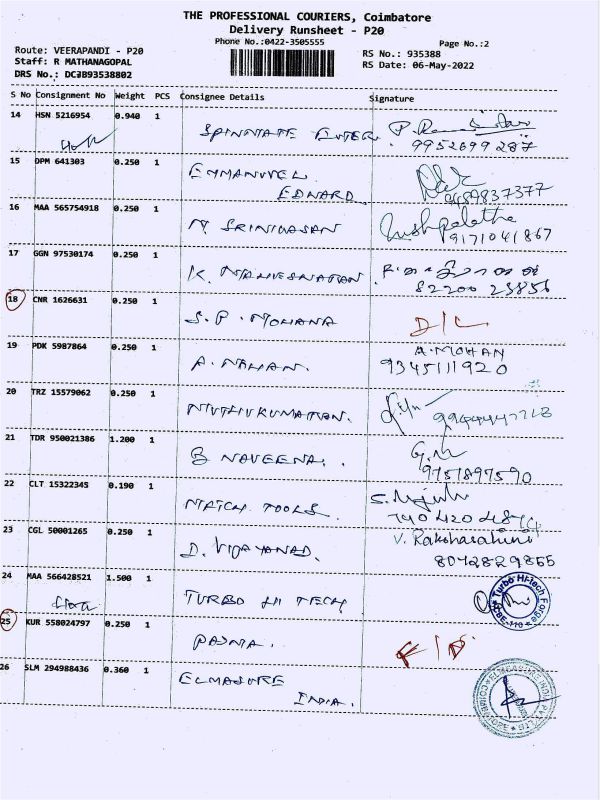 THE PROFESSIONAL COURIERS, Coimbatore
Delivery Runsheet - P20
Phone No.:0422-3505555
Page No.:2
Route: VEERAPANDI - P20
RS No.: 935388
Staff: R MATHANAGOPAL
RS Date: 06-May-2022
DRS No.: DCJB93538802
S No Consignment No Weight PCS Consignee Details Signature
14 HSN 5216954 0.940 1
9952699287
15 DPM 641303 0.250 1 EMMANUVEL
EDWARD
9489837377
16 MAA 565754918 0.250 1 M SRINIVASAN Pushpalatha
9171041867
17 GGN 97530174 0.250 1
82200 23856
18 CNR 1626631 0.250 1 S.P. MOHANA D/L
19 PDK 5987864 0.250 1 A. MOHAN
9345111920
20 TRZ 15579062 0.250 1 MUTHUKUMARAN.
21 TDR 950021386 1.200 1 B NAVEENA.
9751897590
22 CLT 15322345 0.190 1 MATCH TOOLS.
23 CGL 50001265 0.250 1 D. VIJAYANAD.
8042829855
24 MAA 566428521 1.500 1 TURBO HI TECH Turbo Hi-Tech Forge
25 KUR 558024797 0.250 1
26 SLM 294988436 0.360 1 ELMEASURE
INDIA.
ELMEASURE INDIA PVT LTD COIMBATORE